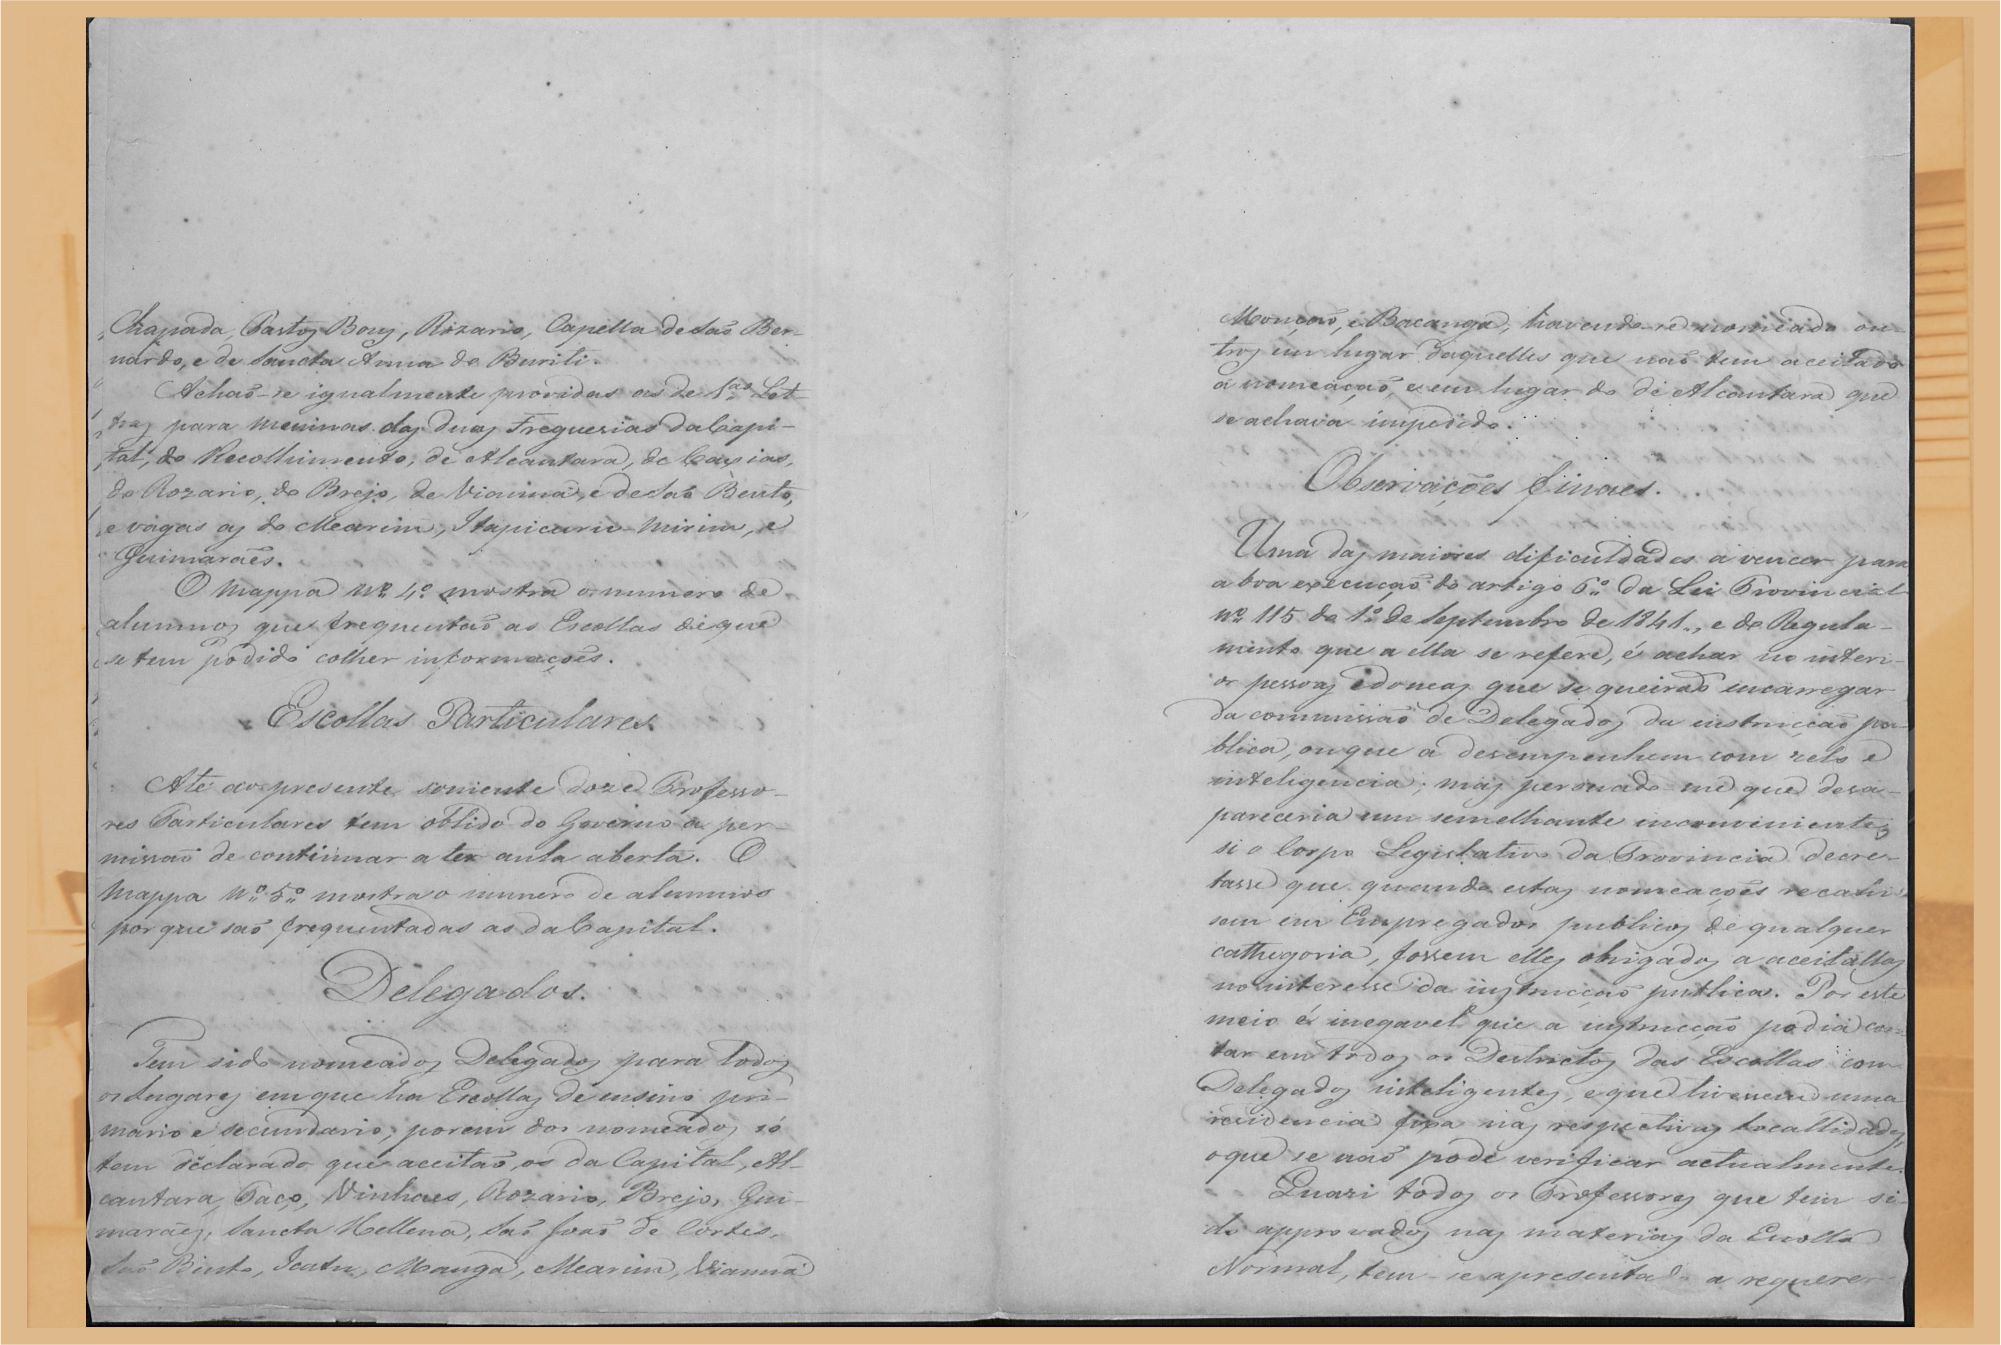 Chapada, Pastos Bons, Rozario, Capella de Saõ Ber-
nardo, e de Sancta Anna do Buriti.
Achaõ-se igualmente providas as de 1.as Let-
tras para meninas das duas Freguesias da Capi-
tal, do Recolhimento, de Alcantara, de Caxias,
do Rozario, do Brejo, de Vianna, e de Saõ Bento,
e vagas as do Mearim, Itapicuru-mirim, e
Guimaraẽs.
O Mappa Nº 4º mostra o numero de
alumnos que frequentaõ as Escollas de que
se tem podido colher informaçoẽs.
Escollas Particulares
Até ao presente somente doze Professo-
res Particulares tem obtido do Governo a per-
missaõ de continuar a ter aula aberta. O
Mappa Nº 5º mostra o numero de alumnos
por que saõ frequentadas as da Capital.
Delegados.
Tem sido nomeados Delegados para todos
os lugares em que ha Escollas de ensino pri-
mario e secundario; porem dos nomeados só
tem declarado que aceitaõ, os da Capital, Al-
cantara, Paço, Vinhaes, Rozario, Brejo, Gui-
maraẽs, Sancta Hellena, Saõ Joaõ de Cortes,
Saõ Bento, Icatu, Manga, Mearim, Vianna
Monçaõ, e Bacanga, havendo-se nomeado ou-
tros em lugar daquelles que naõ tem aceitado
a nomeaçaõ, e em lugar do de Alcantara que
se achava impedido.
Observaçoẽs finaes.
Uma das maiores dificuldades a vencer para
a boa execuçaõ do artigo 6º da Lei Provincial
Nº 115 do 1º de Septembro de 1841, e do Regula-
mento que a ella se refere, é achar no interi-
or pessoas idoneas que se queiraõ incarregar
da commissaõ de Delegados da instrucçaõ pu-
blica, ou que a desempenhem com zelo e
inteligencia; mas persuado-me que desa-
pareceria um semelhante inconveniente,
si o Corpo Legislativo da Provincia decre-
tasse que quando estas nomeaçoẽs recahis-
sem em Empregados publicos de qualquer
cathegoria, fossem elles obrigados a aceitallas
no interesse da instrucçaõ publica. Por este
meio é inegavel que a instrucçaõ podia con-
tar em todos os Destrictos das Escollas com
Delegados inteligentes, e que tivessem uma
residencia fixa nas respectivas locallidades,
o que se naõ pode verificar actualmente.
Quasi todos os Professores que tem si-
do approvados nas materias da Escolla
Normal, tem-se apresentado a requerer